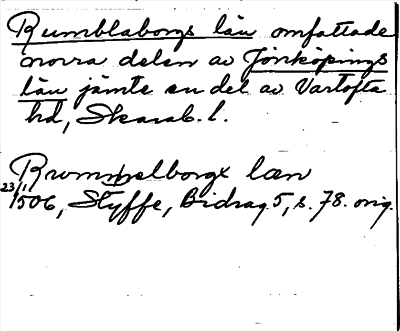 Rumblaborgs län omfattade
norra delen av Jönköpings
län jämte en del av Vartofta
hd, Skarab. l.
Rwmbbelborgx læn
23/1 1506, Styffe, Bidrag 5, s. 78. orig.